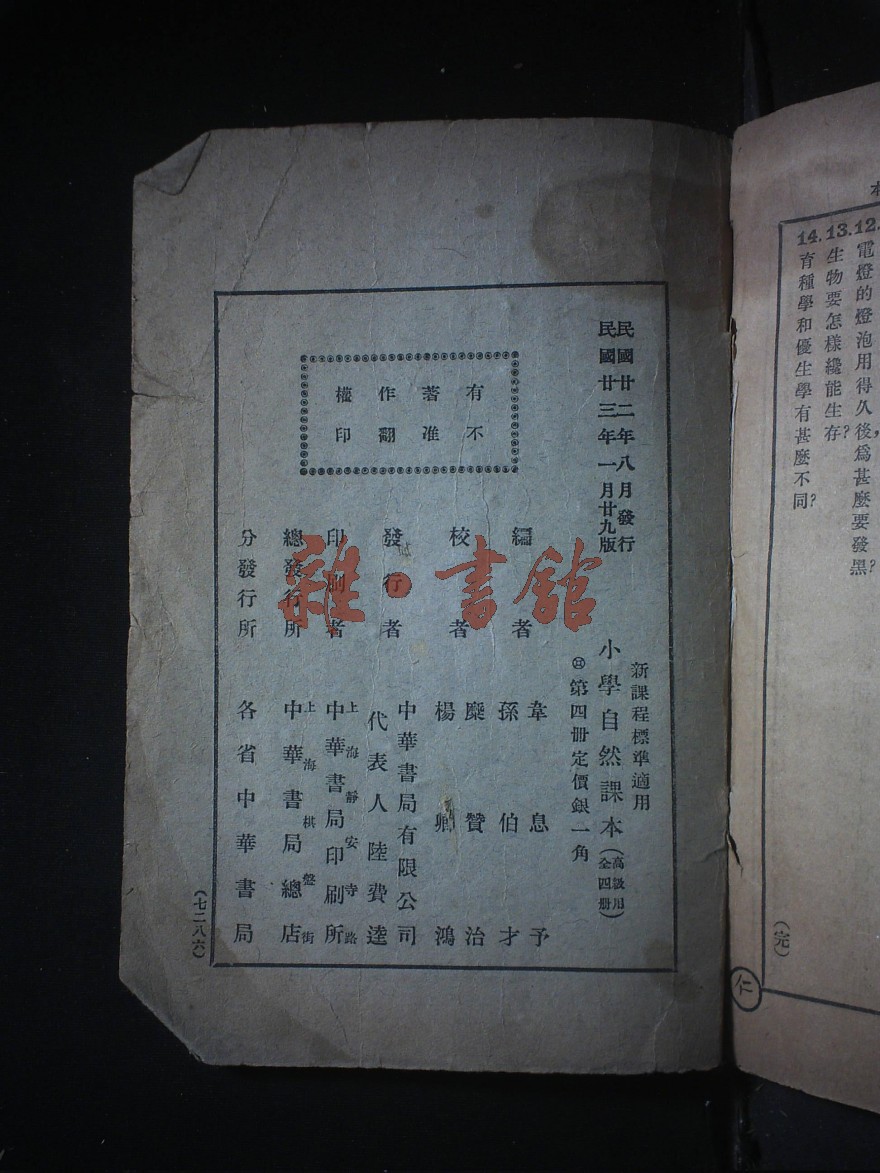 本
12.
電燈的燈泡用得久後，爲甚麼要發黑？
13.生物要怎樣纔能生存？
14.育種學和優生學有甚麼不同？
（完）
仁
民國廿二年八月發行
民國廿三年一月廿九版
新課程標準適用
小學自然課本（高級用全四册）
第四册定價銀一角
有著作權
不准翻印
編者
韋息予
孫伯才
校者
糜贊治
楊卿鴻
發行者
中華書局有限公司
代表人陸費逵
印刷者
上海靜安寺路
中華書局印刷所
總發行所
上海棋盤街
中華書局總店
分發行所
各省中華書局
（七二八六）
雜·書館